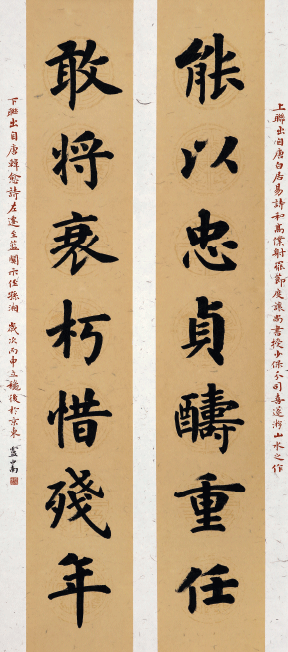 上聯出自唐白居易詩和高僕射罷節度讓尚書授少保分司喜遂游山水之作
能以忠貞醻重任
敢将衰朽惜殘年
下聯出自唐韓愈詩左遷至藍關示侄孫湘 歲次丙申立穐後於京東 盧中南